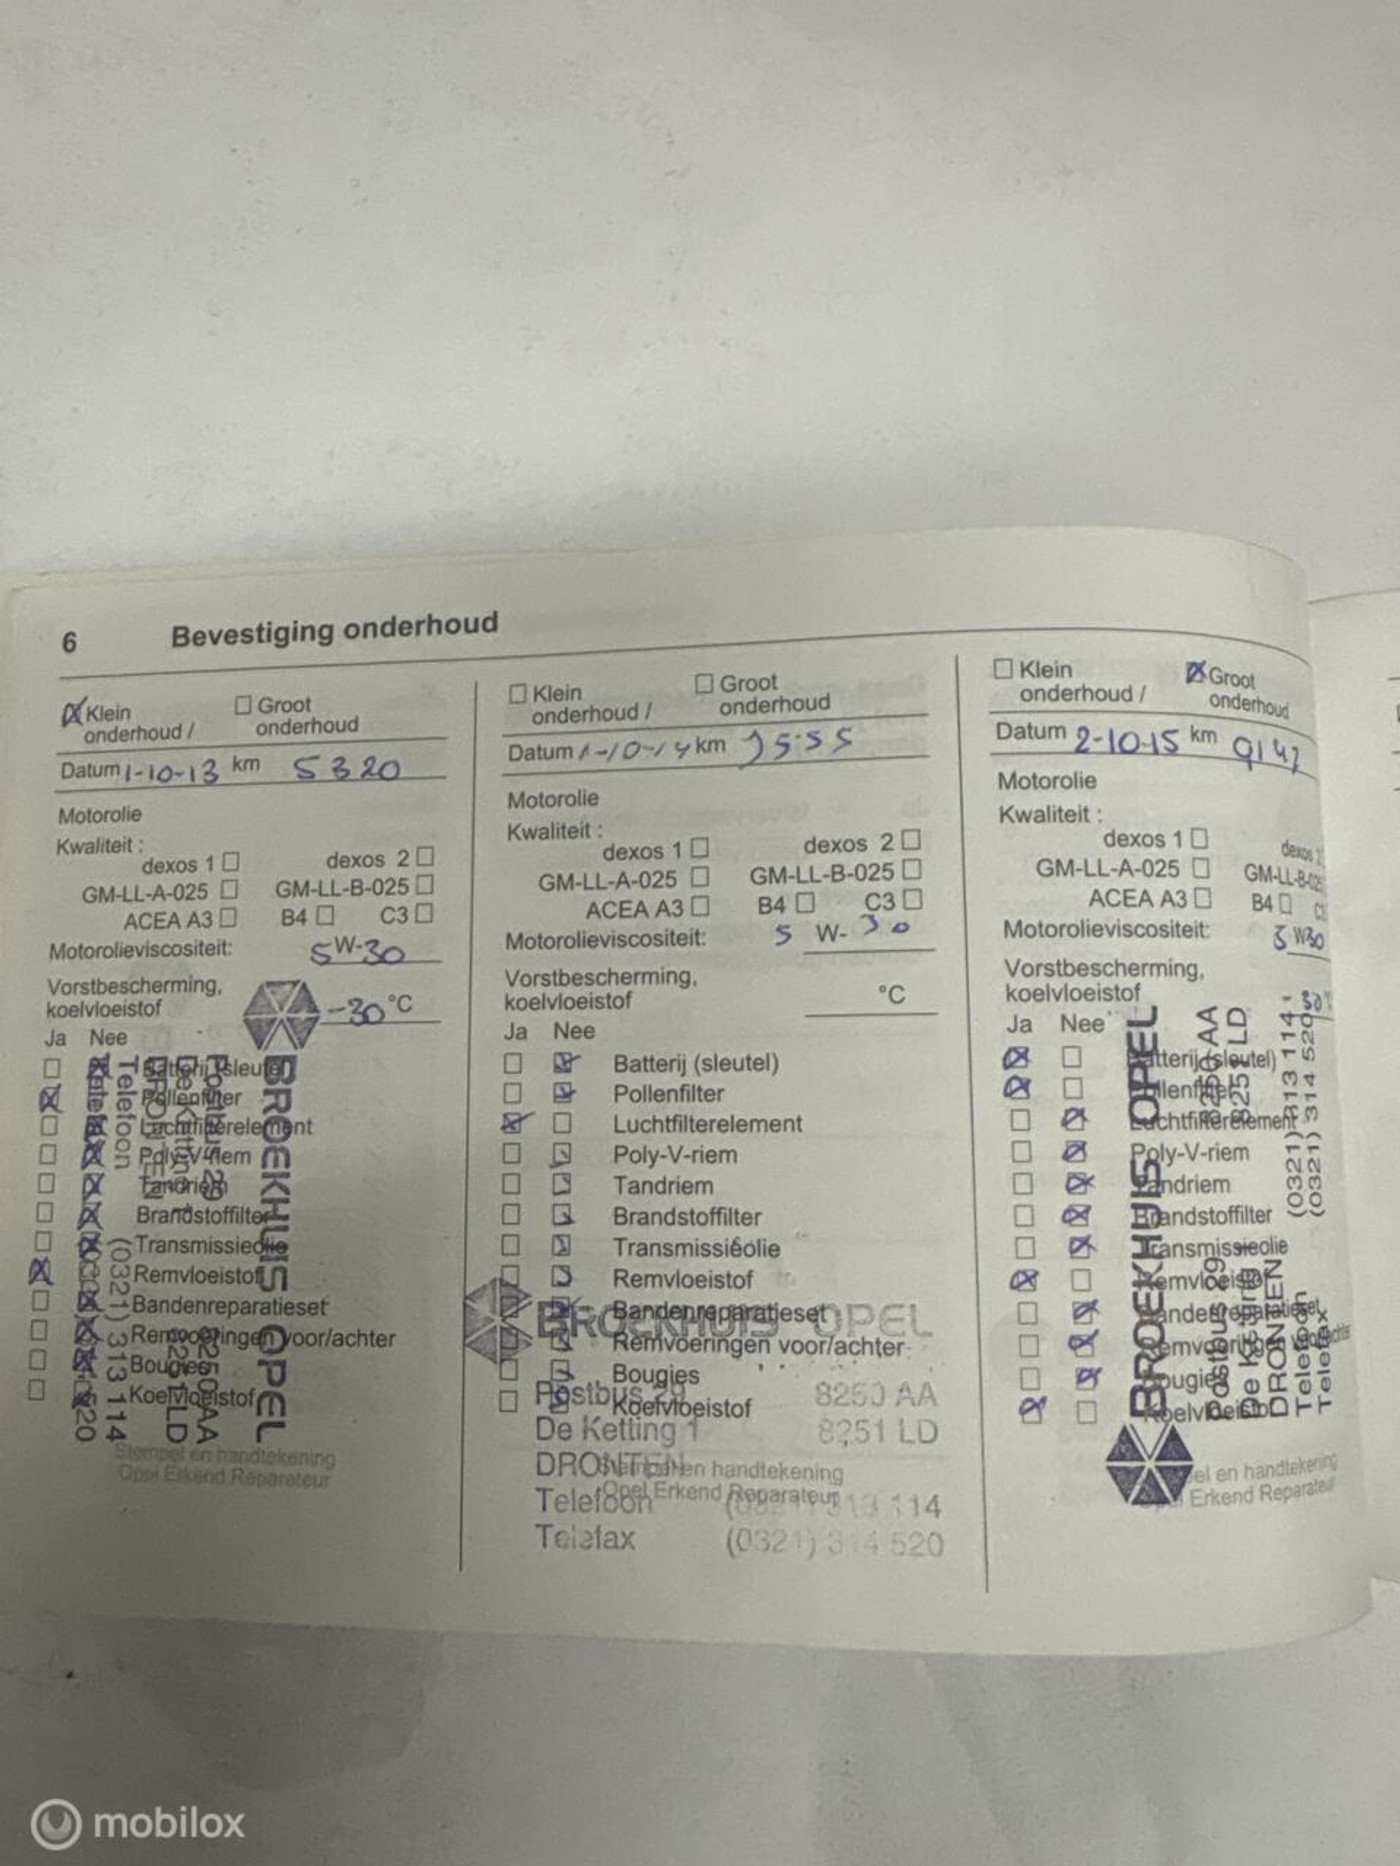 6 Bevestiging onderhoud
Klein onderhoud / Groot onderhoud
Datum 1-10-13 km 5320
Motorolie
Kwaliteit :
dexos 1 dexos 2
GM-LL-A-025 GM-LL-B-025
ACEA A3 B4 C3
Motorolieviscositeit: 5W-30
Vorstbescherming,
koelvloeistof -30 °C
Ja Nee
Batterij (sleutel)
Pollenfilter
Luchtfilterelement
Poly-V-riem
Tandriem
Brandstoffilter
Transmissieolie
Remvloeistof
Bandenreparatieset
Remvoeringen voor/achter
Bougies
Koelvloeistof
Stempel en handtekening
Opel Erkend Reparateur
BROEKHUIS OPEL
Postbus 29 8250 AA
De Ketting 1 8251 LD
DRONTEN
Telefoon (0321) 313 114
Telefax 520
Klein onderhoud / Groot onderhoud
Datum 1-10-14 km
Motorolie
Kwaliteit :
dexos 1 dexos 2
GM-LL-A-025 GM-LL-B-025
ACEA A3 B4 C3
Motorolieviscositeit: 5 W- 30
Vorstbescherming,
koelvloeistof °C
Ja Nee
Batterij (sleutel)
Pollenfilter
Luchtfilterelement
Poly-V-riem
Tandriem
Brandstoffilter
Transmissieolie
Remvloeistof
Bandenreparatieset
Remvoeringen voor/achter
Bougies
Koelvloeistof
Stempel en handtekening
Opel Erkend Reparateur
BROEKHUIS OPEL
Postbus 29 8250 AA
De Ketting 1 8251 LD
DRONTEN
Telefoon (0321) 313 114
Telefax (0321) 314 520
Klein onderhoud / Groot onderhoud
Datum 2-10-15 km
Motorolie
Kwaliteit :
dexos 1 dexos 2
GM-LL-A-025 GM-LL-B-025
ACEA A3 B4 C3
Motorolieviscositeit: 5 W30
Vorstbescherming,
koelvloeistof -30°
Ja Nee
Batterij (sleutel)
Pollenfilter
Luchtfilterelement
Poly-V-riem
Tandriem
Brandstoffilter
Transmissieolie
Remvloeistof
Bandenreparatieset
Remvoeringen voor/achter
Bougies
Koelvloeistof
Stempel en handtekening
Opel Erkend Reparateur
BROEKHUIS OPEL
Postbus 29 8250 AA
De Ketting 8251 LD
DRONTEN
Telefoon (0321) 313 114
Telefax (0321) 314 520
mobilox